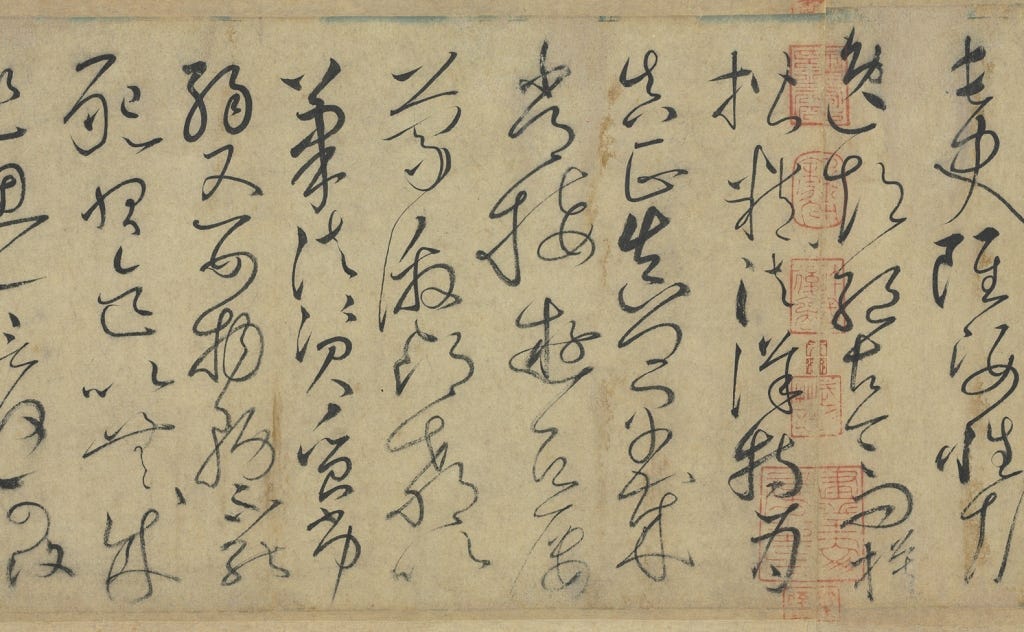 長史雖姿性顛
逸超絕古今而模
楷精法詳特為
真正真卿早歲
常接遊居屢
蒙激昂教以
筆法資質劣
弱又嬰物務不能
懇習迄以無成
追思一言何可復